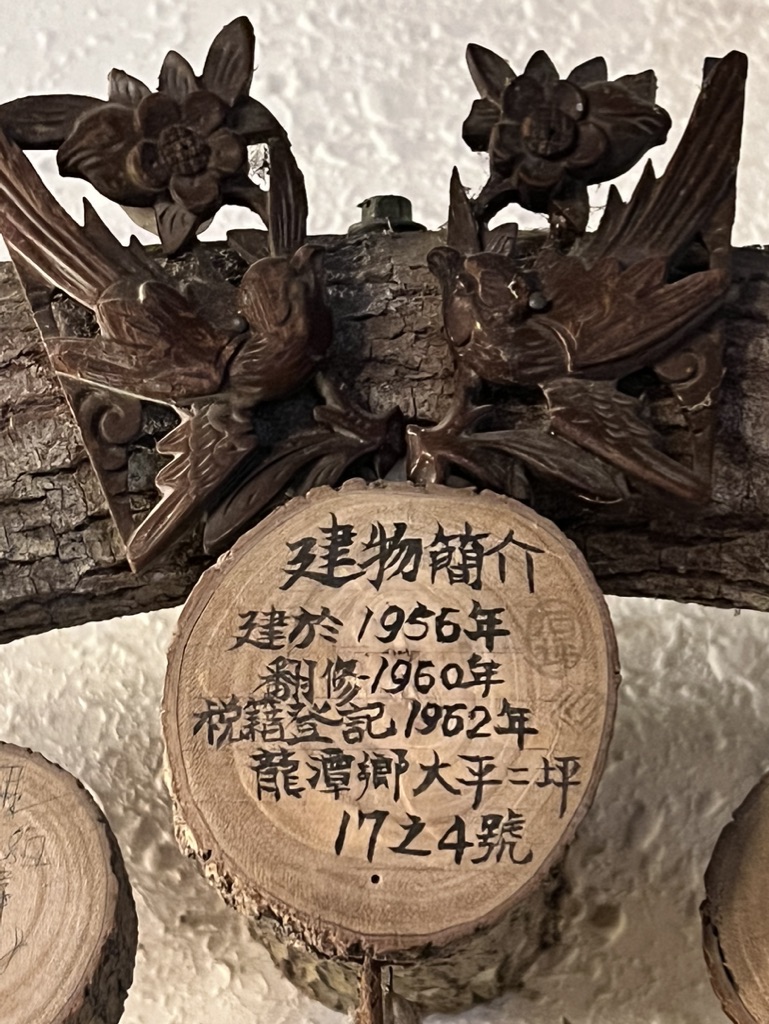 建物簡介
建於1956年
翻修-1960年
稅籍登記1962年
龍潭鄉大平二坪
17之4號